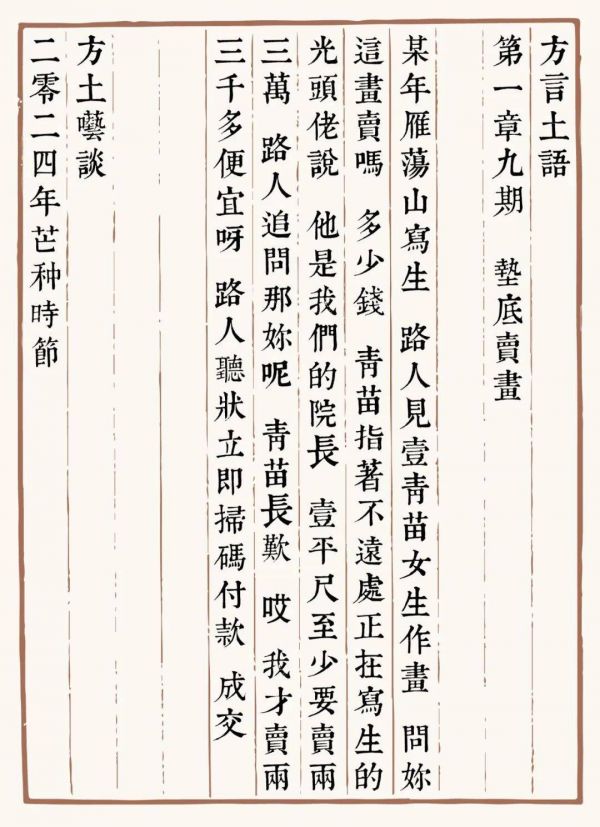 方言土語
第一章九期 墊底賣畫
某年雁蕩山寫生 路人見壹青苗女生作畫 問妳
這畫賣嗎 多少錢 青苗指著不遠處正在寫生的
光頭佬說 他是我們的院長 壹平尺至少要賣兩
三萬 路人追問那妳呢 青苗長歎 哎 我才賣兩
三千多便宜呀 路人聽狀立即掃碼付款 成交
方土藝談
二零二四年芒种時節